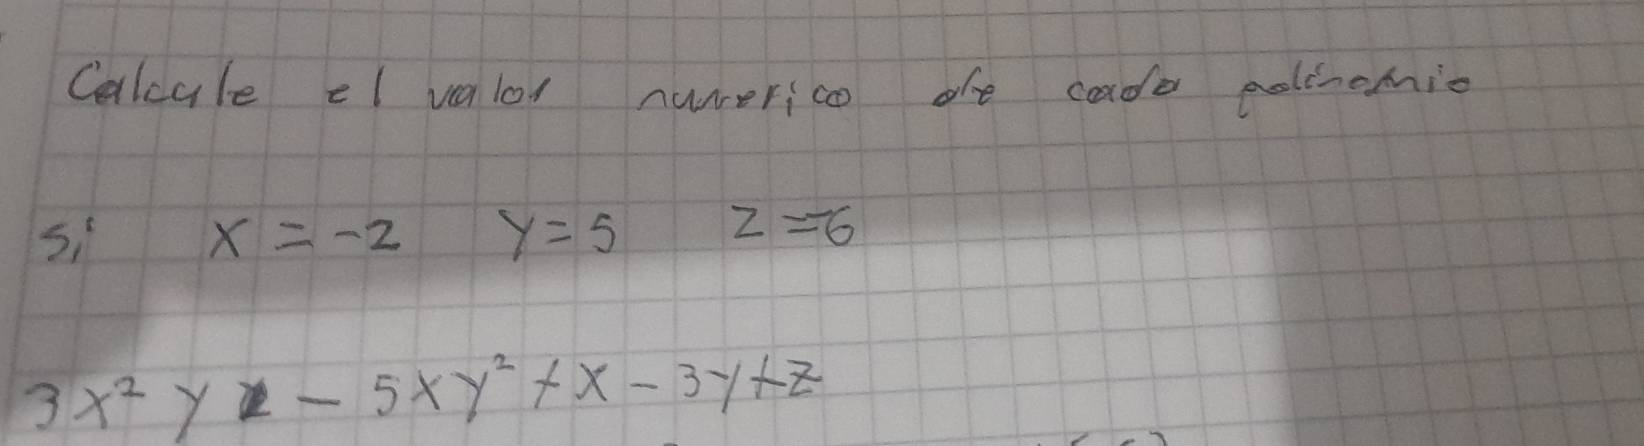 Calcule el valor numerico de cada polinomio
Si x = -2 y = 5 z = -6
3x² y z - 5xy² + x - 3y + z